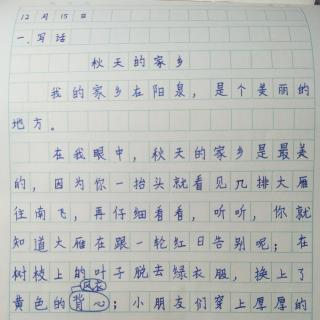 12 月 15 日
一.写话
秋天的家乡
我的家乡在阳泉，是个美丽的
地方。
在我眼中，秋天的家乡是最美
的，因为你一抬头就看见几排大雁
往南飞，再仔细看看，听听，你就
知道大雁在跟一轮红日告别呢；在
树枝上的叶子脱去绿衣服，换上了
风衣
黄色的背心；小朋友们穿上厚厚的